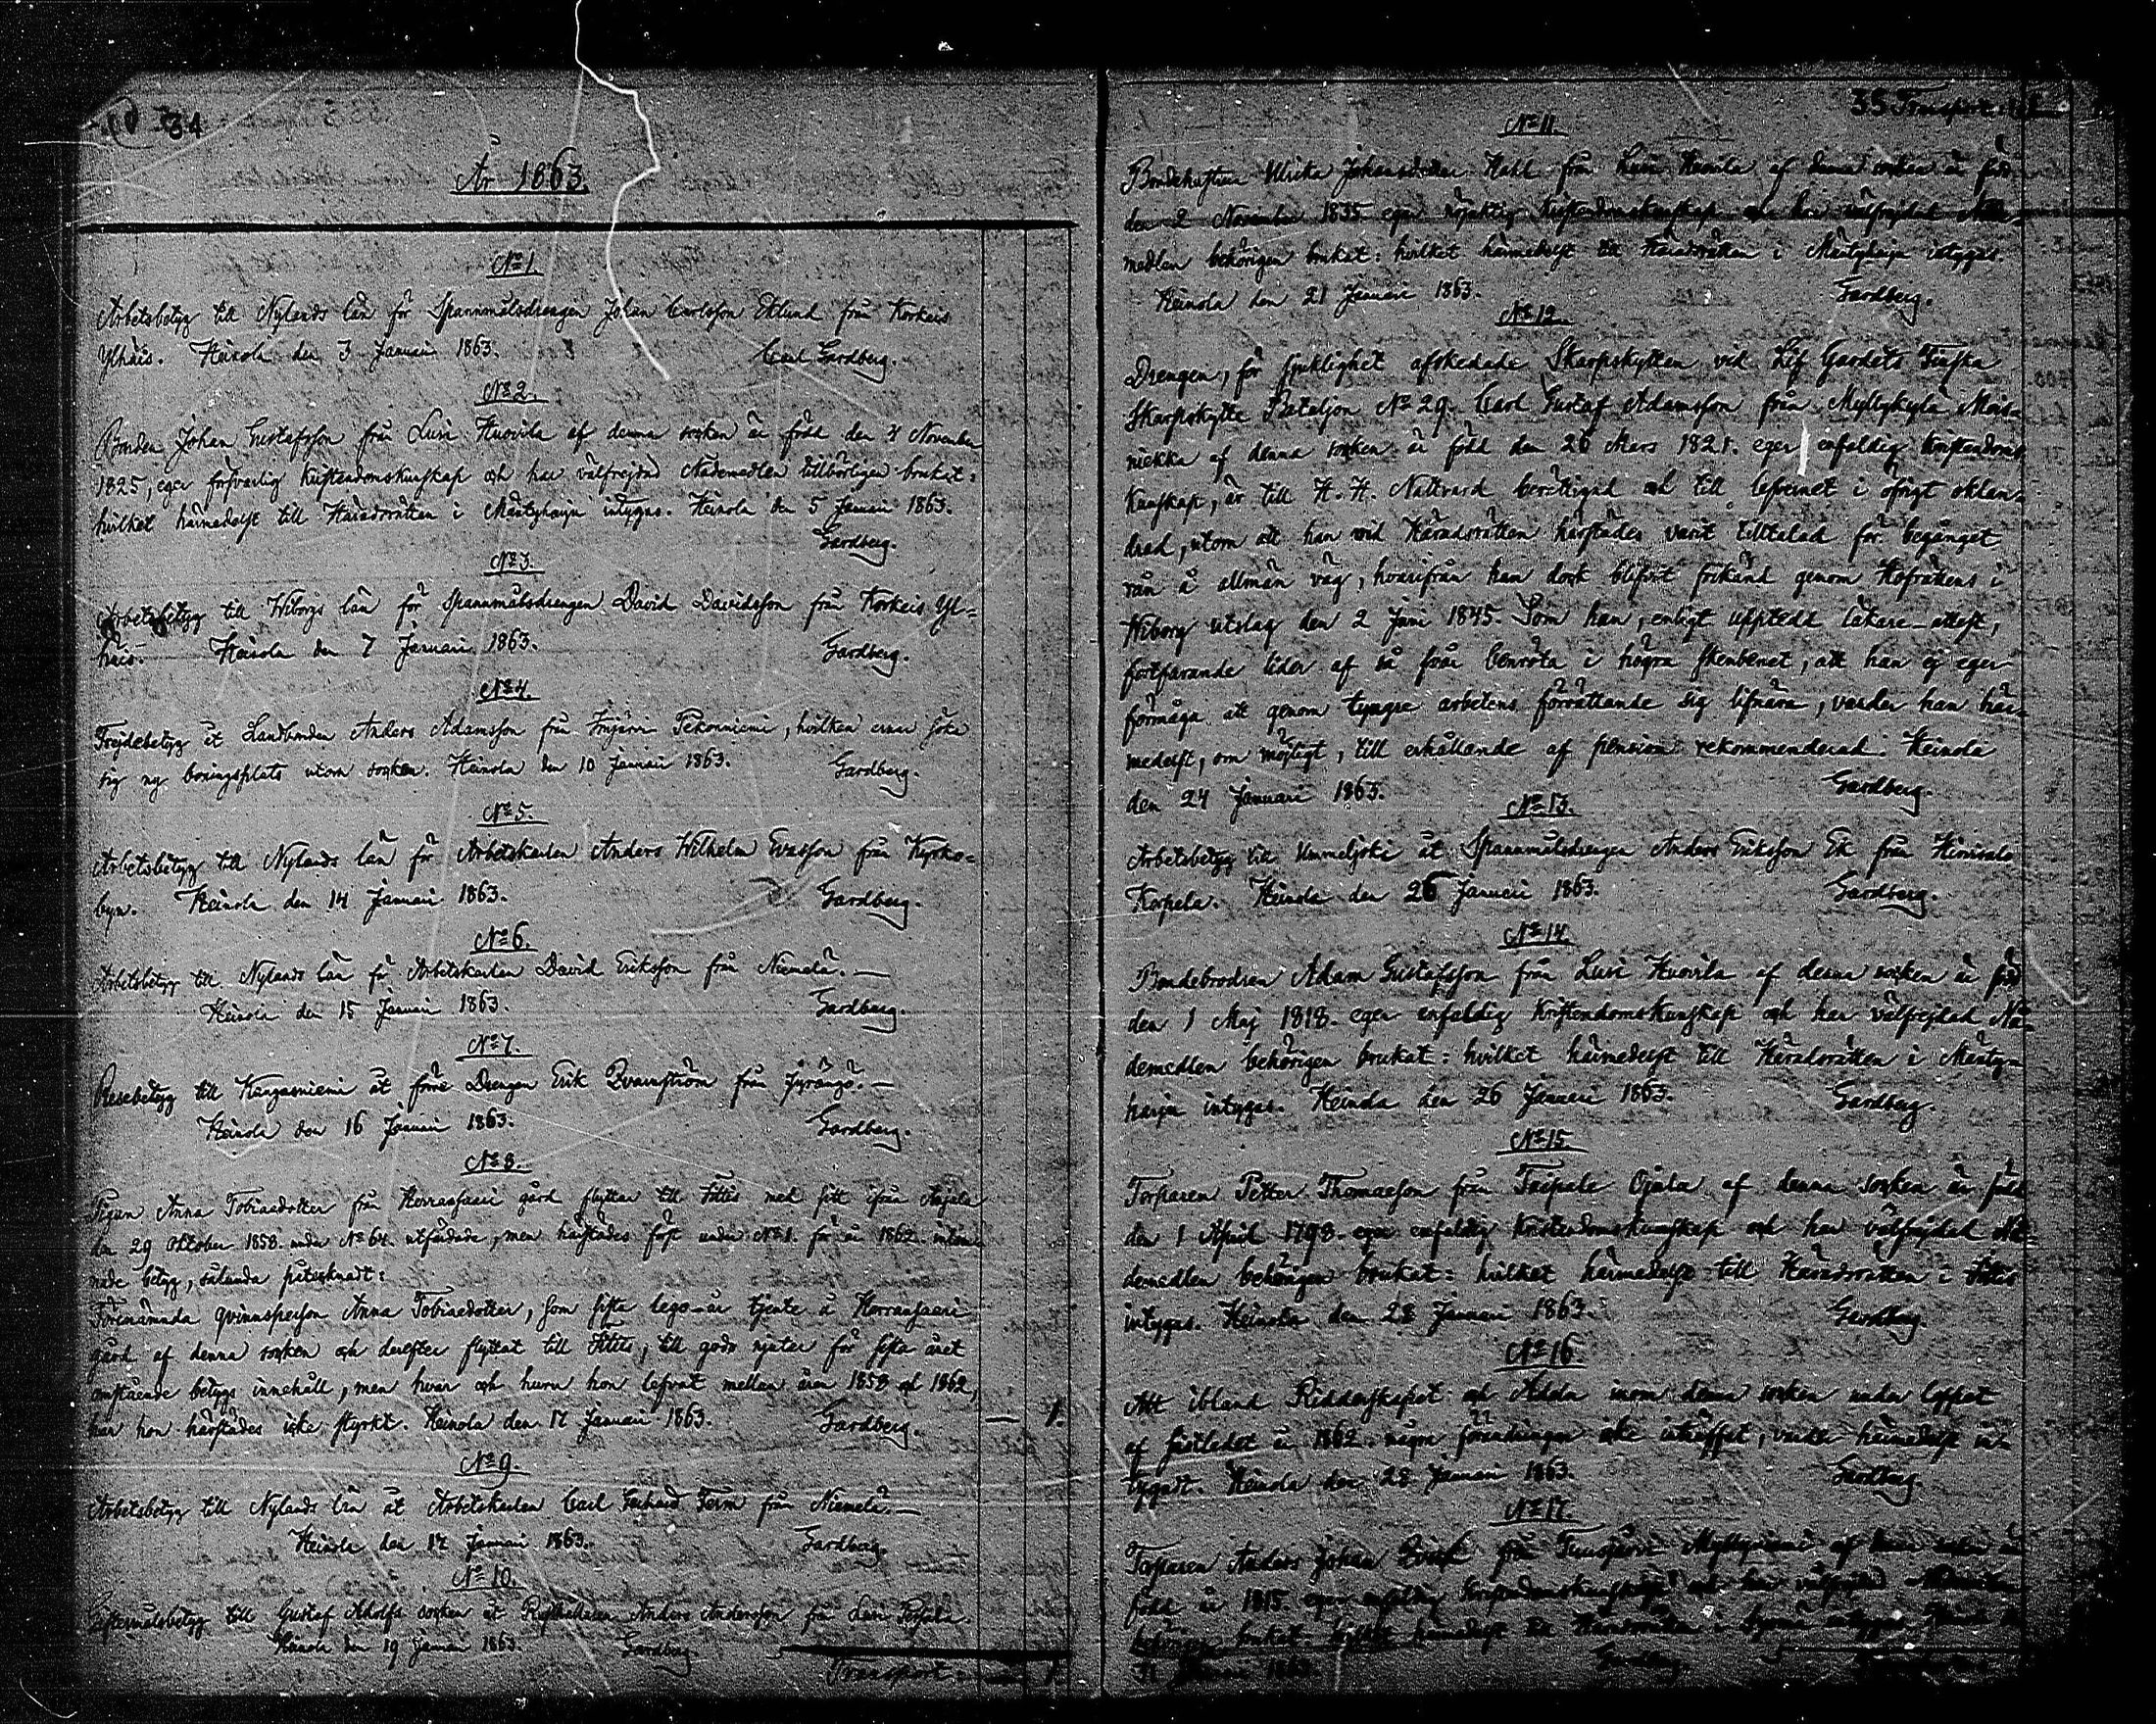 34
År 1863.
No 1.
Arbetsbetyg till Nylands län för Spannmålsdrengen Johan Carlsson Eklund från Korkeis
Ylhäis. Heinola den 3 Januari 1863. Carl Gardberg.
No 2.
Bonden Johan Gustafsson från Lusi Huovila af denna socken är född den 4 November
1825, eger försvarlig Kristendomskunskap och har välfrejdad Nådemedlen tillbörligen brukat:
hvilket härmedelst till Häradsrätten i Mäntyharju intygas. Heinola den 5 Januari 1863.
Gardberg.
No 3.
Arbetsbetyg till Wiborgs län för Spannmålsdrengen David Davidsson från Korkeis Yl=
häis. Heinola den 7 Januari 1863. Gardberg.
No 4.
Frejdebetyg åt Landbonden Anders Adamsson från Imjärvi Pekonniemi, hvilken ernar söka
sig ny boningsplats utom socken. Heinola den 10 Januari 1863. Gardberg.
No 5.
Arbetsbetyg till Nylands län för Arbetskarlen Anders Wilhelm Evasson från Kyrko=
byn. Heinola den 14 Januari 1863. Gardberg.
No 6.
Arbetsbetyg till Nylands län för Arbetskarlen David Eriksson från Niemelä. —
Heinola den 15 Januari 1863. Gardberg.
No 7.
Resebetyg till Kangasniemi åt förre Drengen Erik Qvarnström från Jyrängö. —
Heinola den 16 Januari 1863. Gardberg.
No 8.
Pigan Anna Tobiaedotter från Korransaari gård flyttar till Ittis med sitt ifrån Anjala
den 29 Oktober 1858 under No 64. utfärdade, men härstädes först under No 1. för år 1862
nade betyg, sålunda påtecknadt:
Förenämnda qvinnsperson Anna Tobiaedotter, som sista lego-år tjente å Korransaari
gård af denna socken och derefter flyttat till Ittis, till godo njuter för sista året
omstående betygs innehåll, men hvar och huru hon lefvat mellan åren 1858 och 1862,
har hon härstädes icke styrkt. Heinola den 17 Januari 1863. Gardberg. — 1.
No 9.
Arbetsbetyg till Nylands län åt Arbetskarlen Carl Gerhard Ferm från Niemelä. —
Heinola den 17 Januari 1863. Gardberg.
No 10.
till Gustaf Adolfs socken åt Anders Andersson från Lusi
Heinola den 19 Januari 1863. Gardberg
Transport — 1.
35 Transport
No 11.
Bondehustrun Ulrika Johansdotter Hahl från Lusi Huovila af denna socken är född
den 2 November 1835 eger nöjaktig Kristendomskunskap och har välfrejdat Nåde=
medlen behörigen brukat: hvilket härmedelst till Häradsrätten i Mäntyharju intygas.
Heinola den 21 Januari 1863. Gardberg.
No 12.
Drengen, för sjuklighet afskedade Skarpskytten vid Lif Gardets Finska
Skarpskytte Bataljon No 29. Carl Gustaf Adamsson från Myllykylä Mois=
niekka af denna socken är född den 26 Mars 1821. eger enfaldig Kristendoms
Kunskap, är till H. H. Nattvard berättigad och till lefvernet i öfrigt oklan=
drad, utom att han vid Häradsrätten härstädes varit tilltalad för begånget
rån å allmän väg, hvarifrån han dock blifvit frikänd genom Hofrättens i
Wiborg utslag den 2 Juni 1845. Som han, enligt uppteddt läkare-attest,
fortfarande lider af så svår benröta i högra skenbenet, att han ej eger
förmåga att genom tyngre arbetens förrättande sig lifnära, varder han här=
medelst, om möjligt, till erhållande af pension rekommenderad. Heinola
den 24 Januari 1863. Gardberg.
No 13.
Arbetsbetyg till Ummeljoki åt Spannmålsdrengen Anders Eriksson Ek från Hirvisalo
Korpela. Heinola den 26 Januari 1863. Gardberg.
No 14.
Bondebrodren Adam Gustafsson från Lusi Huovila af denna socken är född
den 1 Maj 1818. eger enfaldig Kristendomskunskap och har välfrejdad Nå=
demedlen behörigen brukat: hvilket härmedelst till Häradsrätten i Mänty=
harju intygas. Heinola den 26 Januari 1863. Gardberg.
No 15.
Torparen Petter Thomasson från Taipale Ojala af denna socken är född
den 1 April 1793. eger enfaldig Kristendomskunskap och har välfrejdad Nå=
demedlen behörigen brukat: hvilket härmedelst till Häradsrätten i Ittis
intygas. Heinola den 28 Januari 1863. Gardberg.
No 16.
Att ibland Ridderskapet och Adeln inom denna socken under loppet
af sistledet år 1862. några förändringar icke inträffat, varder härmedelst in=
tygadt. Heinola den 28 Januari 1863. Gardberg.
No 17.
Torparen Anders Johan från af denna socken är
född år 1815. eger enfaldig Kristendomskunskap och har välfrejdad
behörigen brukat: hvilket härmedelst till Häradsrätten i intygas. Heinola den
31 Januari 1863. Gardberg.